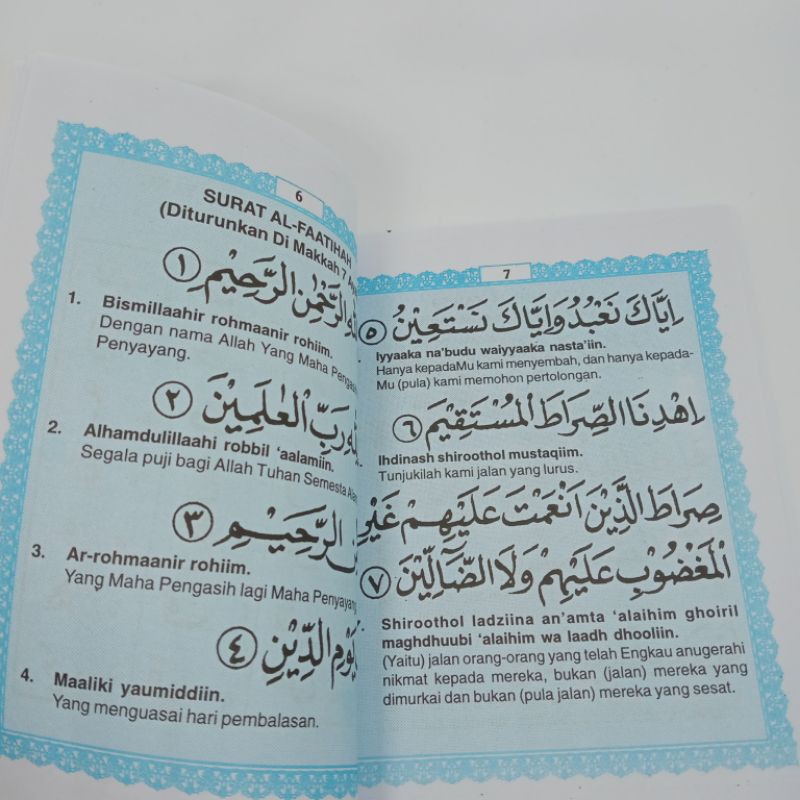 6
SURAT AL-FAATIHAH
(Diturunkan Di Makkah 7
الرَّحْمٰنِ الرَّحِيْمِ ١
1. Bismillaahir rohmaanir rohiim.
Dengan nama Allah Yang Maha
Penyayang.
رَبِّ الْعٰلَمِيْنَ ٢
2. Alhamdulillaahi robbil 'aalamiin.
Segala puji bagi Allah Tuhan Semesta
الرَّحِيْمِ ٣
3. Ar-rohmaanir rohiim.
Yang Maha Pengasih lagi Maha Penyayang
يَوْمِ الدِّيْنِ ٤
4. Maaliki yaumiddiin.
Yang menguasai hari pembalasan.
7
اِيَّاكَ نَعْبُدُ وَاِيَّاكَ نَسْتَعِيْنُ ٥
Iyyaaka na'budu waiyyaaka nasta'iin.
Hanya kepadaMu kami menyembah, dan hanya kepada-
Mu (pula) kami memohon pertolongan.
اِهْدِنَا الصِّرَاطَ الْمُسْتَقِيْمَ ٦
Ihdinash shiroothol mustaqiim.
Tunjukilah kami jalan yang lurus.
صِرَاطَ الَّذِيْنَ اَنْعَمْتَ عَلَيْهِمْ غَيْرِ
الْمَغْضُوْبِ عَلَيْهِمْ وَلَا الضَّآلِّيْنَ ٧
Shiroothol ladziina an'amta 'alaihim ghoiril
maghdhuubi 'alaihim wa laadh dhooliin.
(Yaitu) jalan orang-orang yang telah Engkau anugerahi
nikmat kepada mereka, bukan (jalan) mereka yang
dimurkai dan bukan (pula jalan) mereka yang sesat.